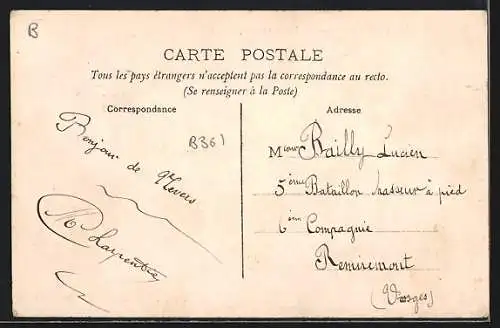 B
CARTE POSTALE
Tous les pays étrangers n'acceptent pas la correspondance au recto.
(Se renseigner à la Poste)
Correspondance
B361
Bonjour de Nevers
M Charpentier
Adresse
Mieur Bailly Lucien
5ème Bataillon chasseur à pied
6ème Compagnie
Remiremont
(Vosges)